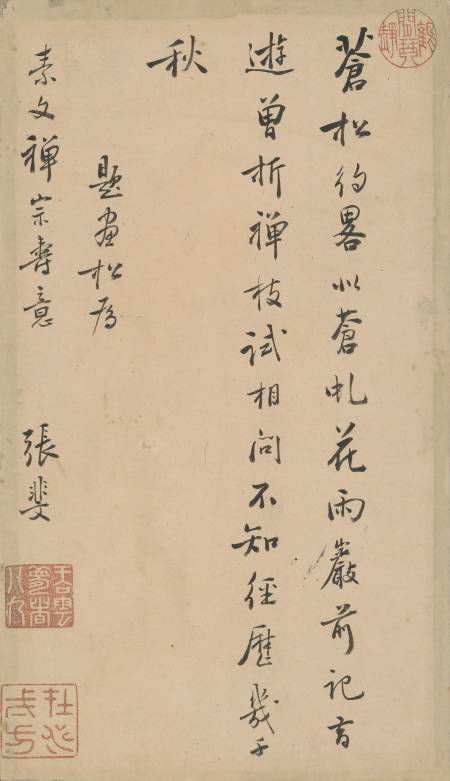 蒼松約畧似蒼虬花雨巖前記
遊曾折禪枝試相問不知經歷幾千
秋
題畫松為
素文禪宗壽意
張斐